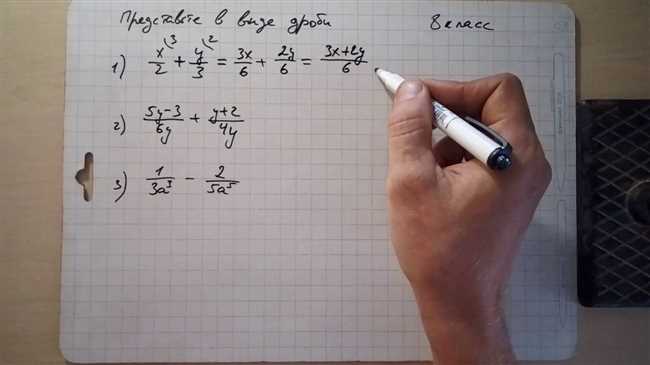 Представьте в виде дроби 8 класс
1) x/2 \3 + y/3 \2 = 3x/6 + 2y/6 = 3x+2y/6
2) 5y-3/6y + y+2/4y
3) 1/3a³ - 2/5a⁵